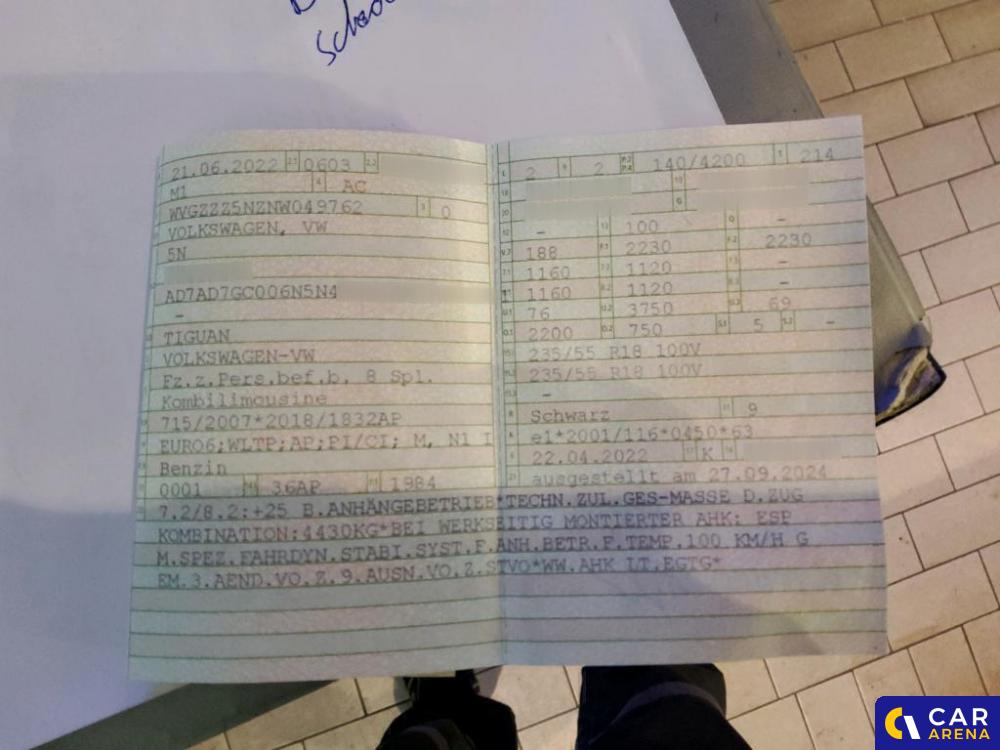 Schad
21.06.2022 2.1 0603 2.2
M1 4 AC
WVGZZZ5NZNW049762 3 0
VOLKSWAGEN, VW
5N
AD7AD7GC006N5N4
-
TIGUAN
VOLKSWAGEN-VW
Fz.z.Pers.bef.b. 8 Spl.
Kombilimousine
715/2007*2018/1832AP
EURO6;WLTP;AP;PI/CI; M, N1 I
Benzin
0001 36AP 1984
2 9 2 P.2 P.4 140/4200 T 214
18 19
20 G
- 100 -
188 2230 2230
1160 1120 -
1160 1120 -
76 3750 69
2200 750 S.1 5 S.2 -
235/55 R18 100V
235/55 R18 100V
-
Schwarz 11 9
e1*2001/116*0450*63
22.04.2022 17 K
ausgestellt am 27.09.2024
7.2/8.2:+25 B.ANHÄNGEBETRIEB*TECHN.ZUL.GES-MASSE D.ZUG
KOMBINATION:4430KG*BEI WERKSEITIG MONTIERTER AHK: ESP
M.SPEZ.FAHRDYN.STABI.SYST.F.ANH.BETR.F.TEMP.100 KM/H G
EM.3.AEND.VO.Z.9.AUSN.VO.Z.STVO*WW.AHK LT.EGTG*
CAR
ARENA